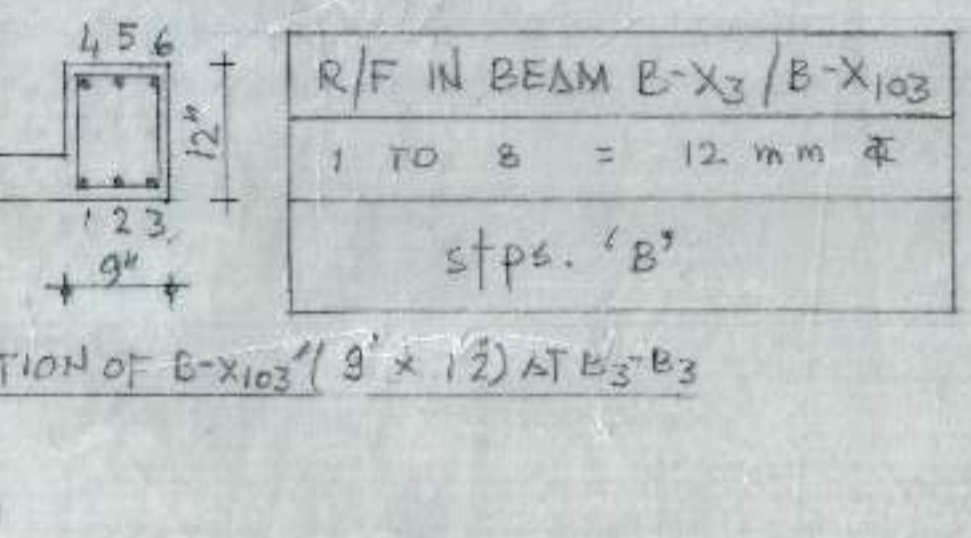 4 5 6
12"
1 2 3
9"
R/F IN BEAM B-X3/B-X103
1 TO 8 = 12 mm
stps. 'B'
TION OF B-X103 (9" x 12") AT B3-B3